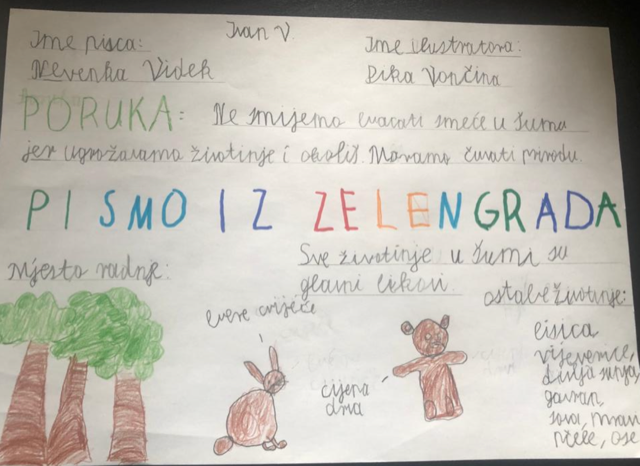 Ivan V.
Ime pisca:
Nevenka Videk
Ime ilustratora:
Dika Vončina
PORUKA: Ne smijemo bacati smeće u šumu
jer ugrožavamo životinje i okoliš. Moramo čuvati prirodu.
PISMO IZ ZELENGRADA
Mjesto radnje:
Sve životinje u šumi su
glavni likovi
bere cvijeće
cijepa
drva
ostale životinje:
lisica
vjeverice,
divlja svinja
gavran,
sova, mravi
pčele, ose